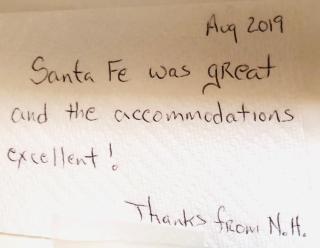 Aug 2019
Santa Fe was gReat
and the accommodations
excellent!
Thanks from N.H.